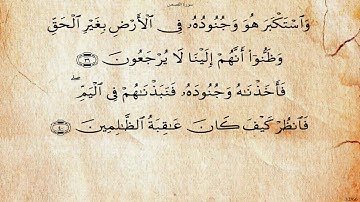 سورة القصص
وَٱسْتَكْبَرَ هُوَ وَجُنُودُهُۥ فِى ٱلْأَرْضِ بِغَيْرِ ٱلْحَقِّ
وَظَنُّوٓا۟ أَنَّهُمْ إِلَيْنَا لَا يُرْجَعُونَ ﴿٣٩﴾
فَأَخَذْنَٰهُ وَجُنُودَهُۥ فَنَبَذْنَٰهُمْ فِى ٱلْيَمِّ ۖ
فَٱنظُرْ كَيْفَ كَانَ عَٰقِبَةُ ٱلظَّٰلِمِينَ ﴿٤٠﴾